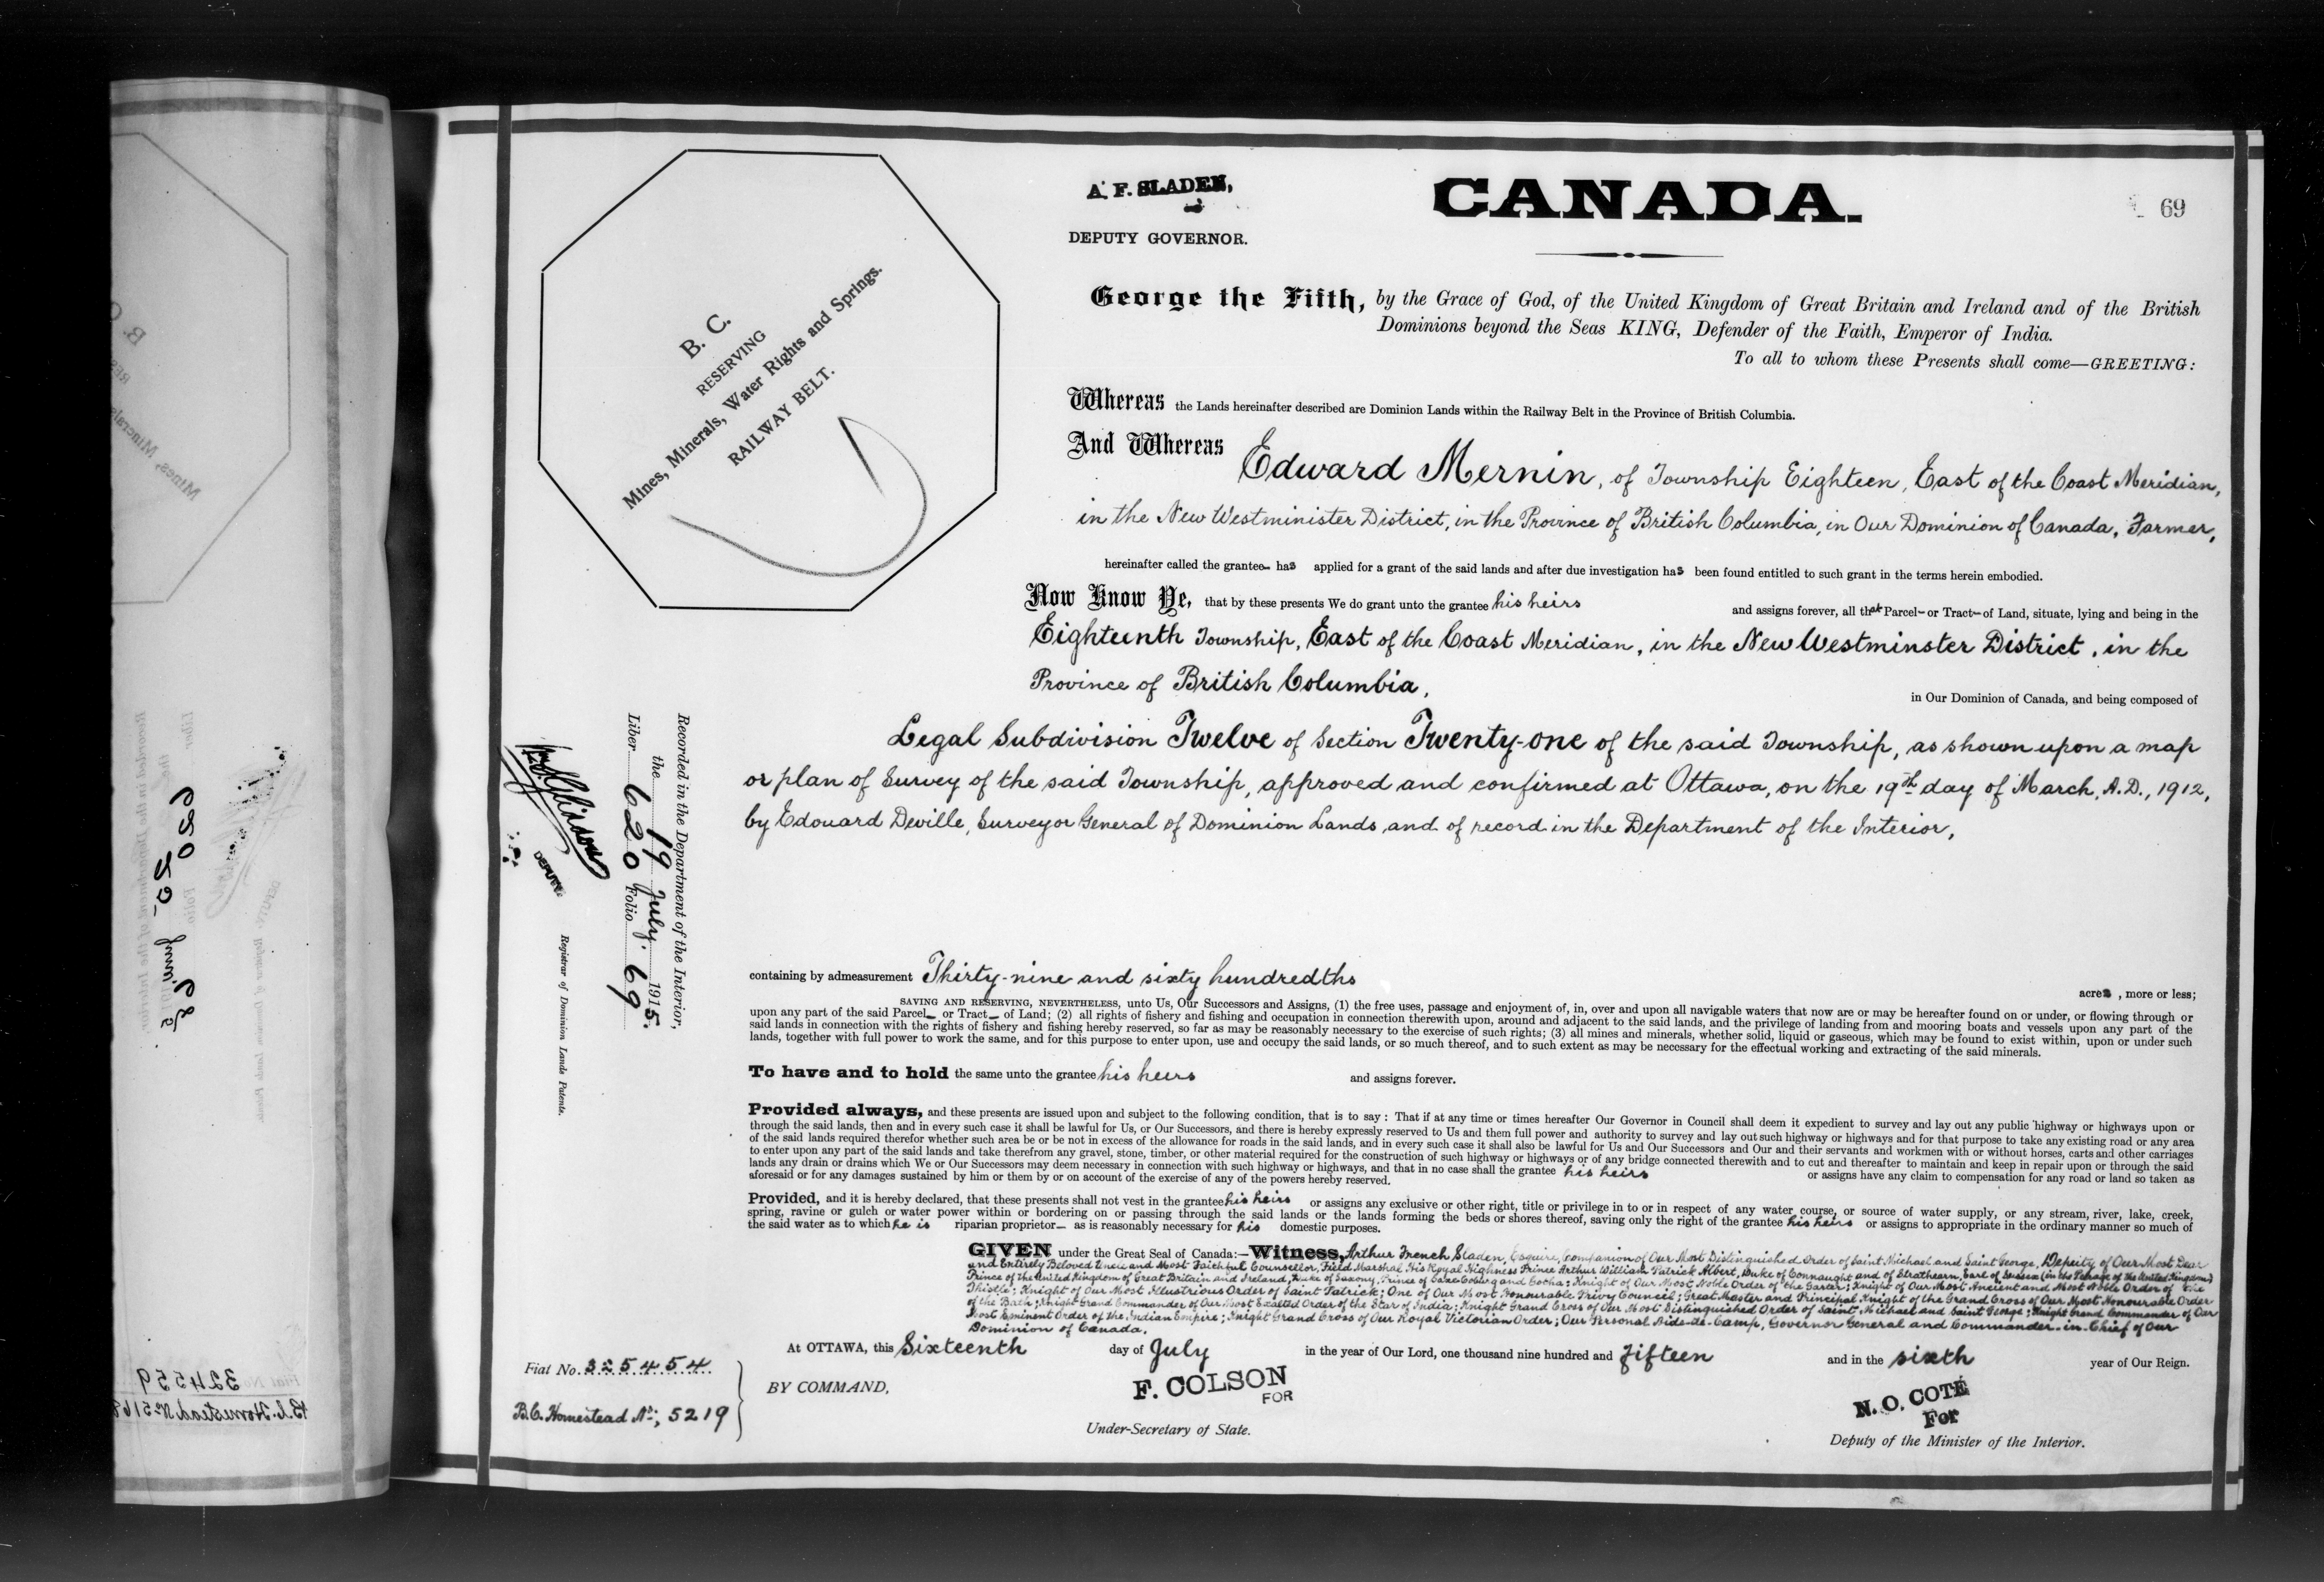 A. F. SLADEN,
DEPUTY GOVERNOR.
CANADA.
69
George the Fifth, by the Grace of God, of the United Kingdom of Great Britain and Ireland and of the British
Dominions beyond the Seas KING, Defender of the Faith, Emperor of India.
To all to whom these Presents shall come—GREETING:
B. C.
RESERVING
Mines, Minerals, Water Rights and Springs.
RAILWAY BELT.
Whereas the Lands hereinafter described are Dominion Lands within the Railway Belt in the Province of British Columbia.
And Whereas Edward Mernin, of Township Eighteen, East of the Coast Meridian,
in the New Westminister District, in the Province of British Columbia, in Our Dominion of Canada, Farmer,
hereinafter called the grantee has applied for a grant of the said lands and after due investigation has been found entitled to such grant in the terms herein embodied.
Now Know Ye, that by these presents We do grant unto the grantee his heirs and assigns forever, all that Parcel or Tract of Land, situate, lying and being in the
Eighteenth Township, East of the Coast Meridian, in the New Westminster District, in the
Province of British Columbia, in Our Dominion of Canada, and being composed of
Legal Subdivision Twelve of Section Twenty-one of the said Township, as shown upon a map
or plan of Survey of the said Township, approved and confirmed at Ottawa, on the 19th day of March, A.D., 1912,
by Edouard Deville, Surveyor General of Dominion Lands and of record in the Department of the Interior,
containing by admeasurement Thirty-nine and sixty hundredths acres, more or less;
SAVING AND RESERVING, NEVERTHELESS, unto Us, Our Successors and Assigns, (1) the free uses, passage and enjoyment of, in, over and upon all navigable waters that now are or may be hereafter found on or under, or flowing through or
upon any part of the said Parcel or Tract of Land; (2) all rights of fishery and fishing and occupation in connection therewith upon, around and adjacent to the said lands, and the privilege of landing from and mooring boats and vessels upon any part of the
said lands in connection with the rights of fishery and fishing hereby reserved, so far as may be reasonably necessary to the exercise of such rights; (3) all mines and minerals, whether solid, liquid or gaseous, which may be found to exist within, upon or under such
lands, together with full power to work the same, and for this purpose to enter upon, use and occupy the said lands, or so much thereof, and to such extent as may be necessary for the effectual working and extracting of the said minerals.
To have and to hold the same unto the grantee his heirs and assigns forever.
Provided always, and these presents are issued upon and subject to the following condition, that is to say: That if at any time or times hereafter Our Governor in Council shall deem it expedient to survey and lay out any public highway or highways upon or
through the said lands, then and in every such case it shall be lawful for Us, or Our Successors, and there is hereby expressly reserved to Us and them full power and authority to survey and lay out such highway or highways and for that purpose to take any existing road or any area
of the said lands required therefor whether such area be or be not in excess of the allowance for roads in the said lands, and in every such case it shall also be lawful for Us and Our Successors and Our and their servants and workmen with or without horses, carts and other carriages
to enter upon any part of the said lands and take therefrom any gravel, stone, timber, or other material required for the construction of such highway or highways or of any bridge connected therewith and to cut and thereafter to maintain and keep in repair upon or through the said
lands any drain or drains which We or Our Successors may deem necessary in connection with such highway or highways, and that in no case shall the grantee his heirs or assigns have any claim to compensation for any road or land so taken as
aforesaid or for any damages sustained by him or them by or on account of the exercise of any of the powers hereby reserved.
Provided, and it is hereby declared, that these presents shall not vest in the grantee his heirs or assigns any exclusive or other right, title or privilege in to or in respect of any water course, or source of water supply, or any stream, river, lake, creek,
spring, ravine or gulch or water power within or bordering on or passing through the said lands or the lands forming the beds or shores thereof, saving only the right of the grantee his heirs or assigns to appropriate in the ordinary manner so much of
the said water as to which he is riparian proprietor as is reasonably necessary for his domestic purposes.
GIVEN under the Great Seal of Canada:—Witness, Arthur French Sladen, Esquire, Companion of Our Most Distinguished Order of Saint Michael and Saint George, Deputy of Our Most Dear
and Entirely Beloved Uncle and Most Faithful Counsellor, Field Marshal His Royal Highness Prince Arthur William Patrick Albert, Duke of Connaught and of Strathearn, Earl of Sussex (in the Peerage of the United Kingdom)
Prince of the United Kingdom of Great Britain and Ireland, Duke of Saxony, Prince of Saxe Coburg and Gotha; Knight of Our Most Noble Order of the Garter; Knight of Our Most Ancient and Most Noble Order of the
Thistle; Knight of Our Most Illustrious Order of Saint Patrick; One of Our Most Honourable Privy Council; Great Master and Principal Knight of the Grand Cross of Our Most Honourable Order
of the Bath; Knight Grand Commander of Our Most Exalted Order of the Star of India; Knight Grand Cross of Our Most Distinguished Order of Saint Michael and Saint George; Knight Grand Commander of Our
Most Eminent Order of the Indian Empire; Knight Grand Cross of Our Royal Victorian Order; Our Personal Aide-de-Camp, Governor General and Commander-in-Chief of Our
Dominion of Canada.
At OTTAWA, this Sixteenth day of July in the year of Our Lord, one thousand nine hundred and fifteen and in the sixth year of Our Reign.
Fiat No. 325454
B.C. Homestead No; 5219
BY COMMAND,
F. COLSON
FOR
Under-Secretary of State.
N. O. COTÉ
For
Deputy of the Minister of the Interior.
Recorded in the Department of the Interior,
the 19 July 1915.
Liber 620 Folio 69
DEPUTY
Registrar of Dominion Lands Patents.
324559
B.C. Homestead No